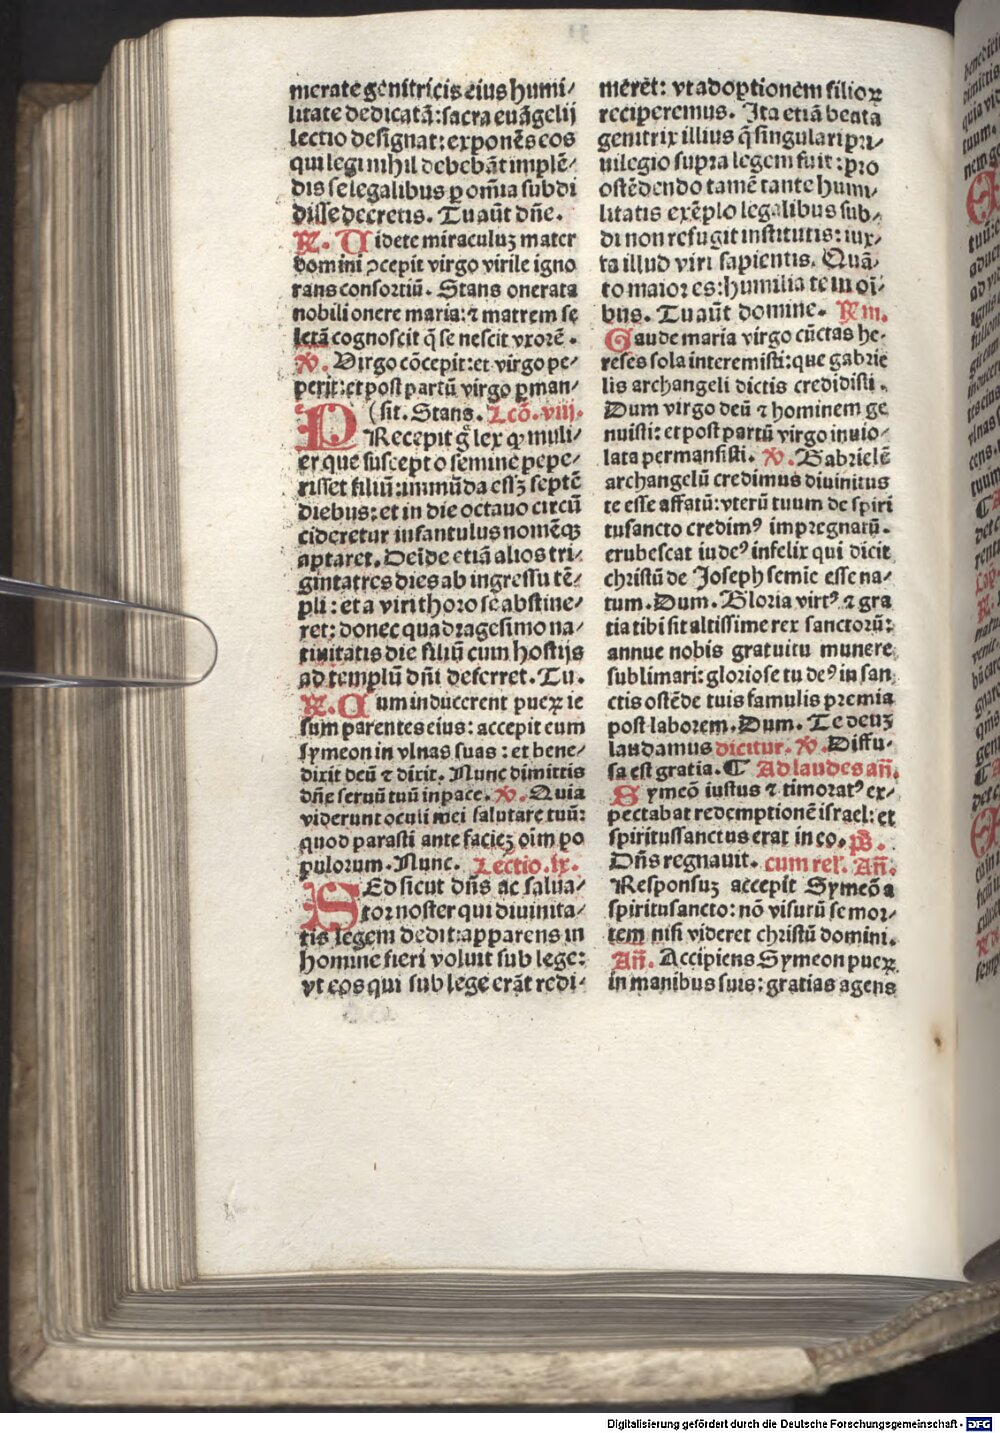 merate genitricis eius humi⸗
litate dedicatā: sacra euāgelij
lectio designat: exponēs eos
qui legi nihil debebāt implē⸗
dis se legalibus ꝑ om̄ia subdi
disse decretis. Tu aūt dn̄e.
℟. Videte miraculuꝫ mater
domini ꝯcepit virgo virile igno
rans consortiū. Stans onerata
nobili onere maria: ⁊ matrem se
letā cognoscit q̄ se nescit vxorē.
℣. Virgo cōcepit: et virgo pe⸗
perit: et post partū virgo ꝑman⸗
(sit. Stans. Lcō. viij.
PRecepit g̊ lex ꝙ muli⸗
er que suscepto semine pepe⸗
risset filiū: immūda essꝫ septē
diebus: et in die octauo circū
cideretur infantulus nomēqꝫ
aptaret. Deīde etiā alios tri⸗
ginta tres dies ab ingressu tē⸗
pli: et a viri thoro se abstine⸗
ret: donec quadragesimo na⸗
tiuitatis die filiū cum hostijs
ad templū dn̄i deferret. Tu.
℟. Cum inducerent pueꝝ ie
sum parentes eius: accepit eum
symeon in vlnas suas: et bene⸗
dixit deū ⁊ dixit. Nunc dimittis
dn̄e seruū tuū in pace. ℣. Quia
viderunt oculi mei salutare tuū:
quod parasti ante facieꝫ oīm po
pulorum. Nunc. Lectio. ix.
SEd sicut dn̄s ac salua⸗
tor noster qui diuinita⸗
tis legem dedit: apparens in
homine fieri voluit sub lege:
vt eos qui sub lege erāt redi⸗
merēt: vt adoptionem filioꝝ
reciperemus. Ita etiā beata
genitrix illius q̄ singulari pri⸗
uilegio supra legem fuit: pro
ostēdendo tamē tante humi⸗
litatis exēplo legalibus sub⸗
di non refugit institutis: iux⸗
ta illud viri sapientis. Quā⸗
to maior es: humilia te in oī⸗
bus. Tu aūt domine. ℟m.
Gaude maria virgo cūctas he⸗
reses sola interemisti: que gabrie
lis archangeli dictis credidisti.
Dum virgo deū ⁊ hominem ge
nuisti: et post partū virgo inuio⸗
lata permansisti. ℣. Gabrielē
archangelū credimus diuinitus
te esse affatū: vterū tuum de spiri
tusancto credimꝰ impregnatū.
erubescat iudeꝰ infelix qui dicit
christū de Joseph semīe esse na⸗
tum. Dum. Gloria virtꝰ ⁊ gra
tia tibi sit altissime rex sanctorū:
annue nobis gratuitu munere
sublimari: gloriose tu deꝰ in san
ctis ostēde tuis famulis premia
post laborem. Dum. Te deuꝫ
laudamus dicitur. ℣. Diffu⸗
sa est gratia. ¶ Ad laudes an̄.
Symeō iustus ⁊ timoratꝰ ex⸗
pectabat redemptionē israel: et
spiritussanctus erat in eo. ps̄.
Dn̄s regnauit. cum rel'. An̄.
Responsuꝫ accepit Symeō a
spiritusancto: nō visurū se mor⸗
tem nisi videret christū domini.
An̄. Accipiens Symeon pueꝝ
in manibus suis: gratias agens
Digitalisierung gefördert durch die Deutsche Forschungsgemeinschaft - DFG